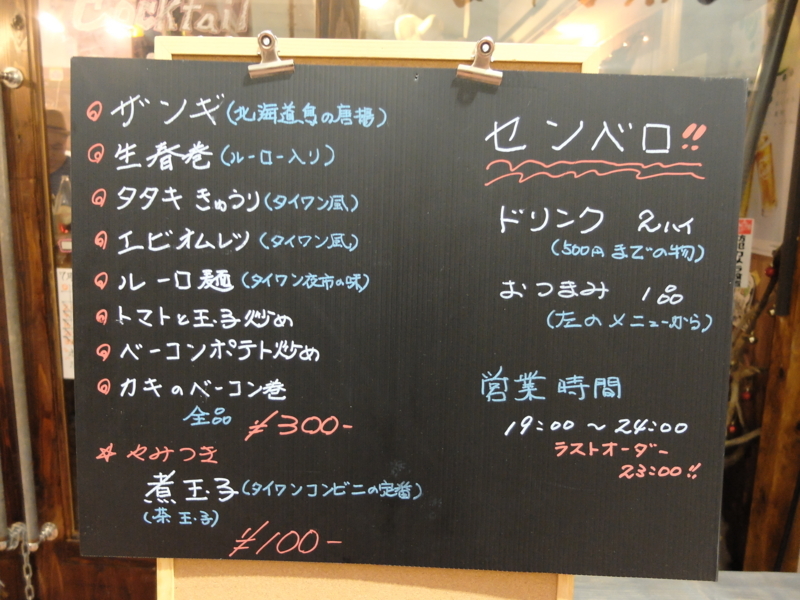 COCKTAIL
ザンギ(北海道鳥の唐揚)
生春巻(ルーロー入り)
タタキきゅうり(タイワン風)
エビオムレツ(タイワン風)
ルーロ麺(タイワン夜市の味)
トマトと玉子炒め
ベーコンポテト炒め
カキのベーコン巻
全品 ¥300-
☆ やみつき
煮玉子(タイワンコンビニの定番)
(茶玉子)
¥100-
センベロ!!
ドリンク 2ハイ
(500円までの物)
おつまみ 1品
(左のメニューから)
営業時間
19:00～24:00
ラストオーダー
23:00!!